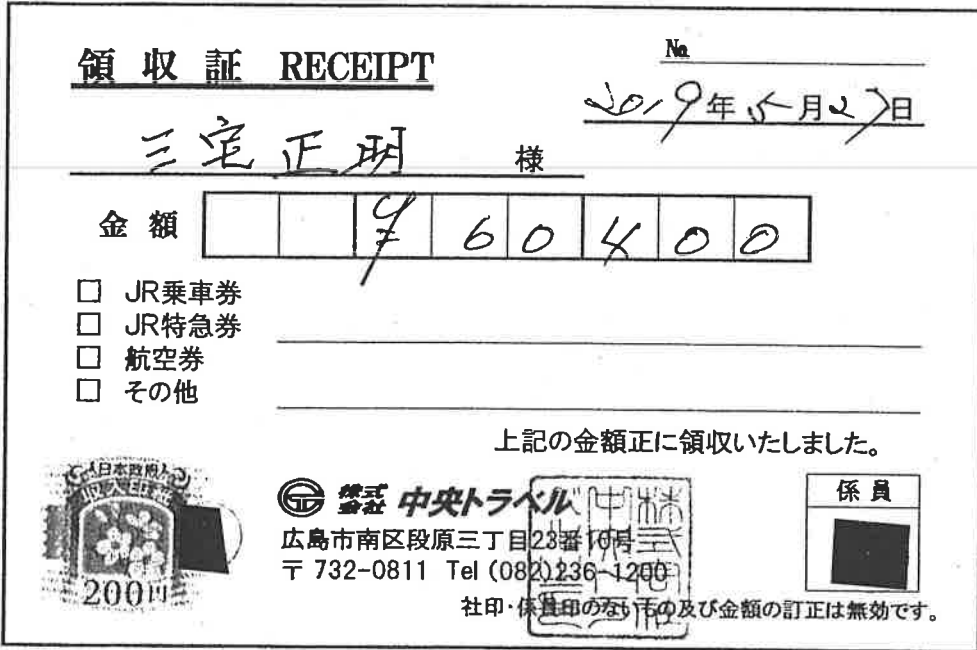 領収証 RECEIPT
No.
2019年5月27日
三宅正明 様
金額 ¥60400
□ JR乗車券
□ JR特急券
□ 航空券
□ その他
上記の金額正に領収いたしました。
日本政府
収入印紙
200円
株式会社 中央トラベル
係員
広島市南区段原三丁目23番16号
〒732-0811 Tel (082)236-1200
社印・係員印のないもの及び金額の訂正は無効です。